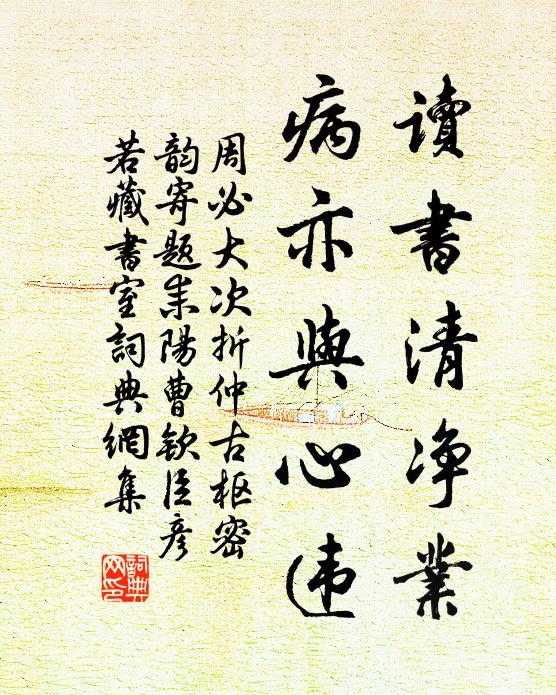 讀書清净業
病亦與心违
周必大次折仲古枢密
韵寄題耒陽曹钦臣彦
若藏書室詞典網集
詞典
网印